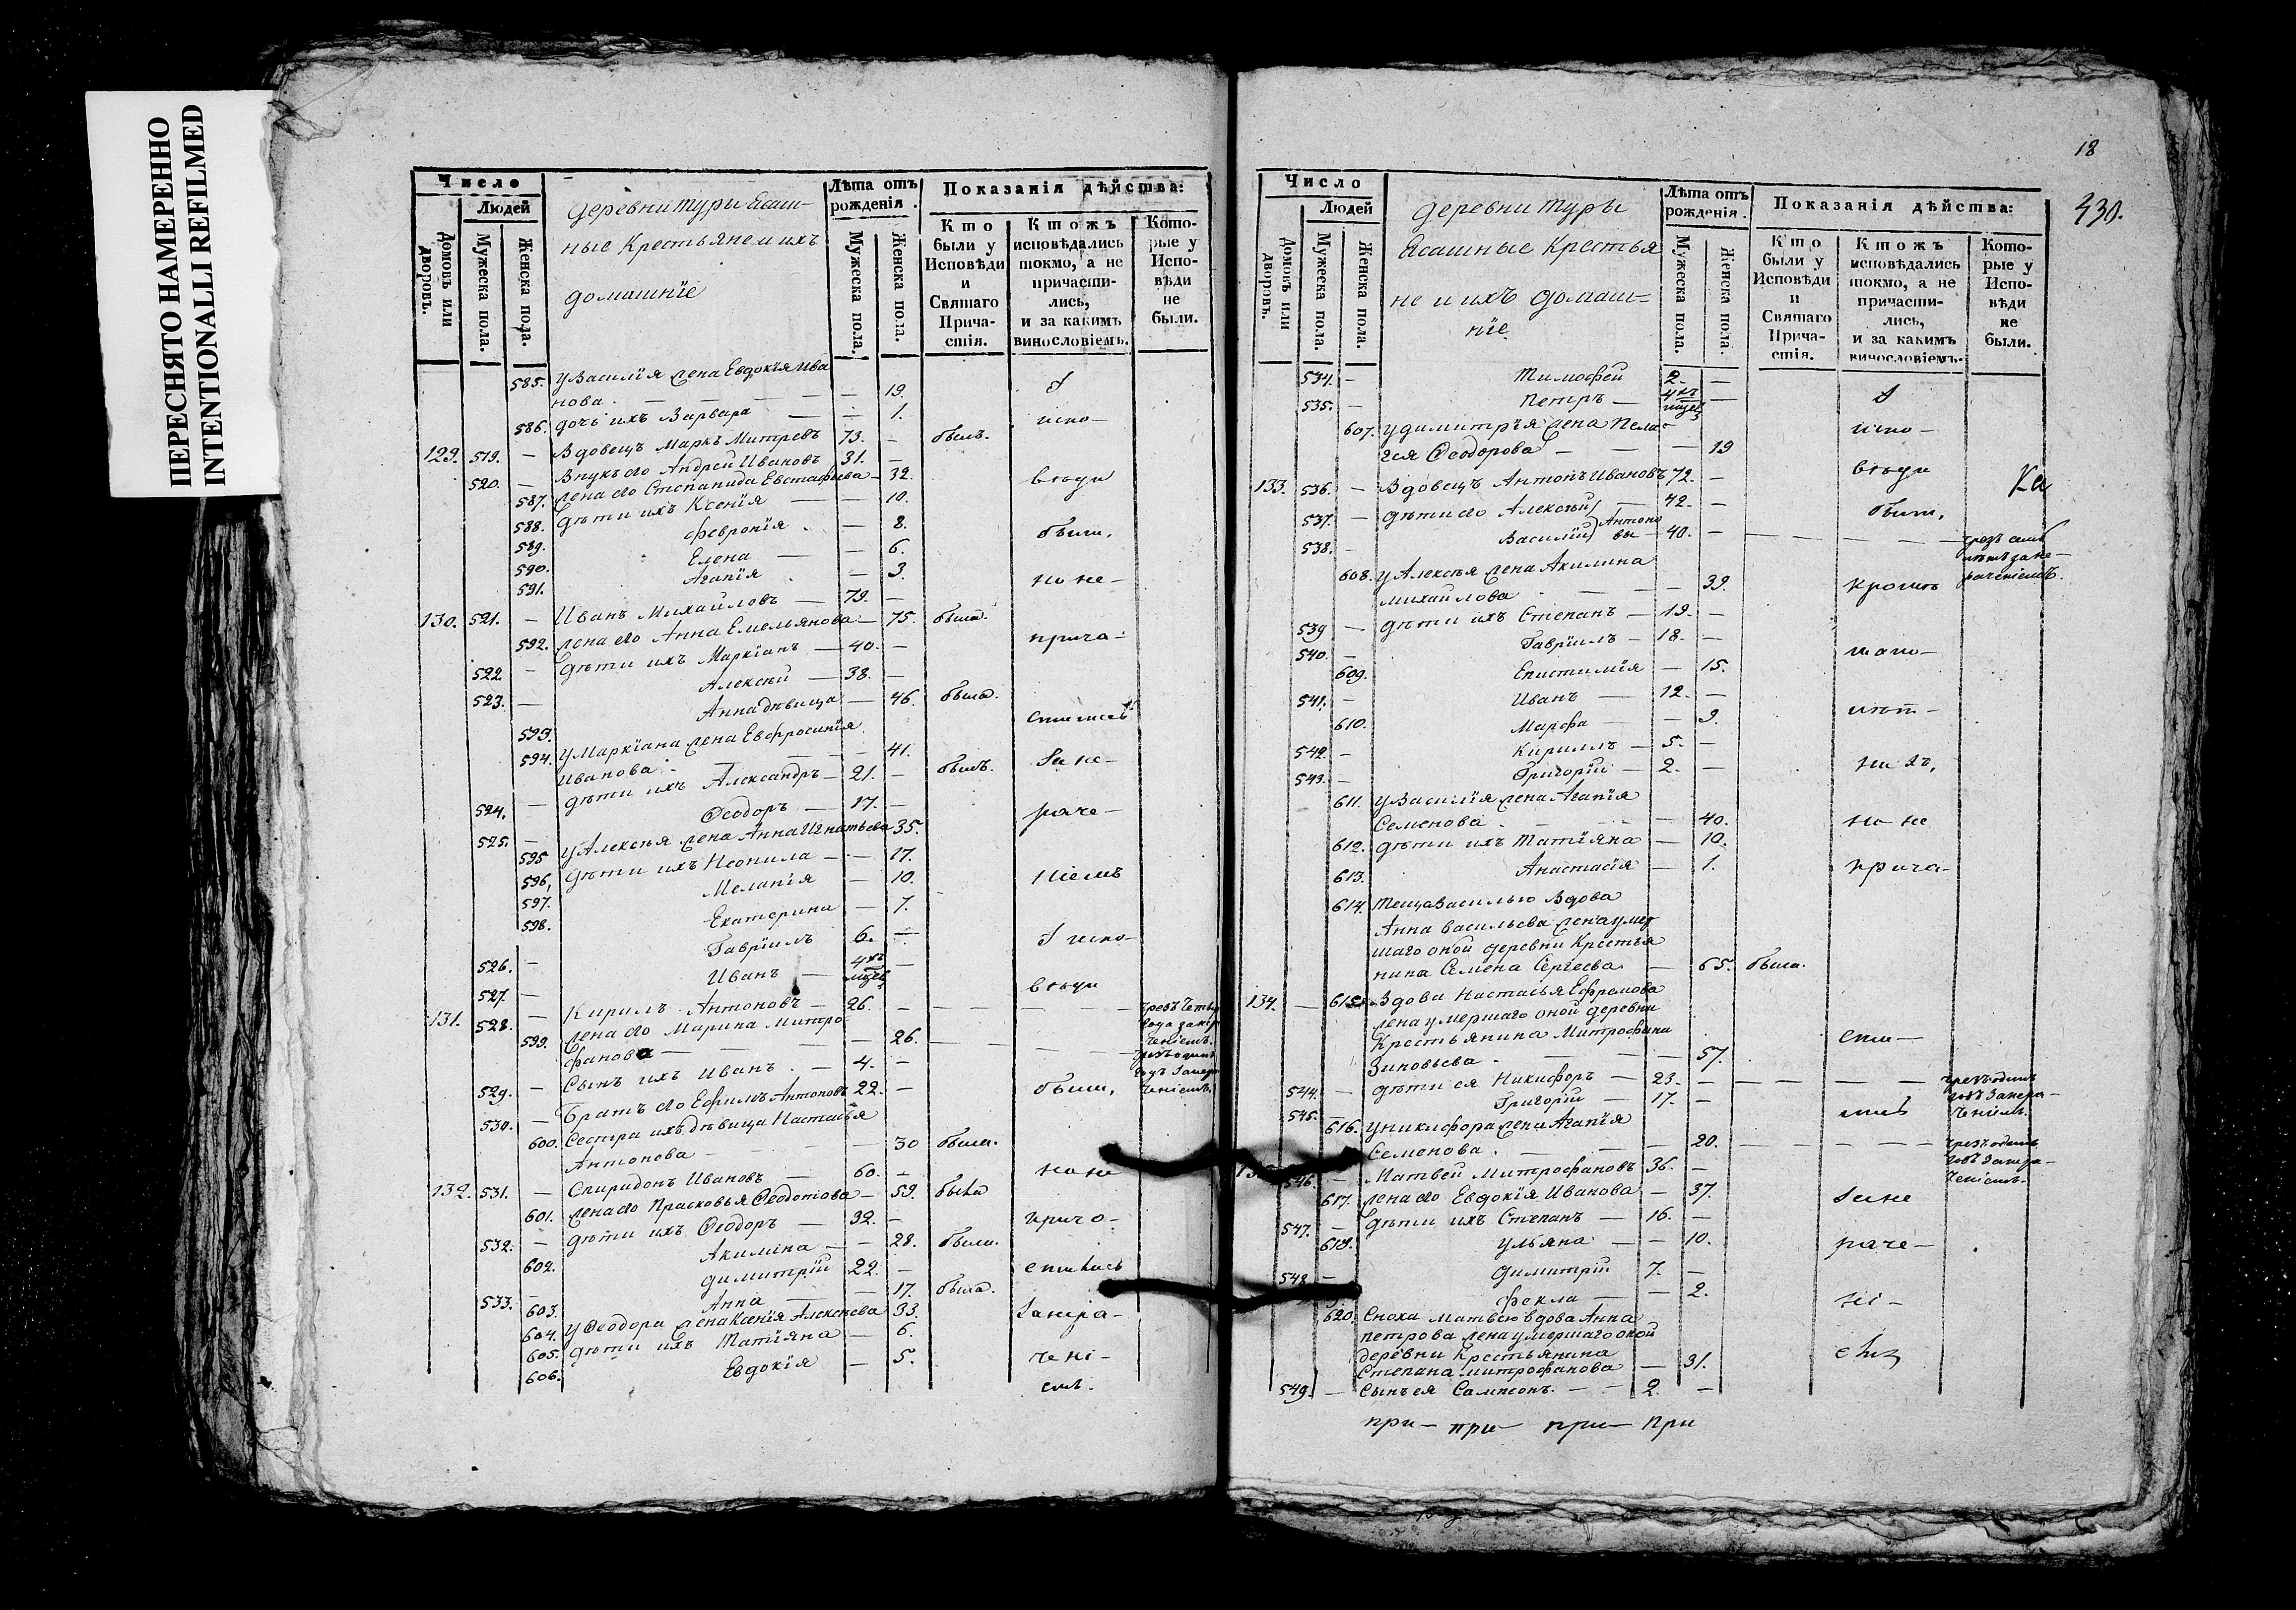 ПЕРЕСНЯТО НАМЕРЕННО
INTENTIONALLI REFILMED
Число
Людей
Домовъ или дворовъ.
Мужеска пола.
Женска пола.
деревни туры Ясаш-
ные Крестьяне и ихъ
домашнїе
Лѣта отъ рожденія.
Мужеска пола.
Женска пола.
Показанія дѣйства:
Кто были у Исповѣди и Святаго Причастія.
Ктожъ исповѣдались токмо, а не причастились, и за какимъ винословіемъ.
Которые у Исповѣди не были.
585. у Василїя жена Евдокїя Ива
нова - 19.
586. дочь ихъ Варвара - 1. испо-
129. 519. - Вдовецъ Маркъ Митревъ 73. - былъ.
520. - Внукъ его Андрей Ивановъ 31. -
587. жена его Степанида Евстафїева - 32. вѣди
588. дѣти ихъ Ксенїя - 10.
589. Февронїя - 8. были,
590. Елена - 6.
591. Агапїя - 3. но не-
130. 521. - Иванъ Михайловъ - 79. -
592. жена его Анна Емельянова - 75. была. прича-
522. - дѣти ихъ Маркїанъ - 40. -
523. - Алексѣй - 38. -
593. Анна дѣвица - 46. была. стились
594. у Маркїана жена Евфросинїя
Иванова - 41. за не-
524. - дѣти ихъ Александръ - 21. - былъ.
525. - Ѳеодоръ - 17. - раче-
595 у Алексѣя жена Анна Игнатьева 35.
596, дѣти ихъ Неонила - 17.
597. Меланїя - 10. нїемъ
598. Екатерина - 7.
526. - Гаврїилъ 6. - испо-
527. - Иванъ - 4хъ мцов - вѣди
131. 528. - Кирилъ Антоновъ - 26. - чрезъ четы
599. жена его Марина Митро-
фанова - 26. - чрезъ одинъ
529. - Сынъ ихъ Иванъ - 4. - годъ за нера
530. - Братъ его Ефимъ Антоновъ 22. - были, ченіемъ.
600. Сестра ихъ дѣвица Настасья
Антонова - 30 была. но не
132. 531. - Спиридонъ Ивановъ - 60. -
601. жена его Прасковья Ѳеодотова - 59. была прича-
532. - дѣти ихъ Ѳеодоръ - 32. -
602. Акилина - 28. была.
533. - димитрїй 22. - стились
603. Анна - 17. была.
604. у Ѳеодора жена Ксенїя Алексѣева 33. за нера-
605. дѣти ихъ Татїяна - 6.
606. Евдокїя - 5. чені-
емъ.
18
430.
Число
Людей
Домовъ или дворовъ.
Мужеска пола.
Женска пола.
деревни Туры
Ясашные Крестья
не и ихъ домаш=
нїе
Лѣта отъ рожденія.
Мужеска пола.
Женска пола.
Показанія дѣйства:
Кто были у Исповѣди и Святаго Причастія.
Ктожъ исповѣдались токмо, а не причастились, и за какимъ винословіемъ.
Которые у Исповѣди не были.
534. - Тимофей 2. -
535. - Петръ - 4хъ мцов -
607. у димитрїя жена Пела- испо-
гея Ѳеодорова - 19
133. 536. - Вдовецъ Антонъ Ивановъ 72. - вѣди
537. - дѣти его Алексѣй - 42. - были,
538. - Василїй Антоно вы - 40. - чрезъ семь
лѣтъ за не-
608. у Алексѣя жена Акилина раченіемъ.
Михайлова - 39. кромѣ
539 - дѣти ихъ Степанъ - 19. -
540. - Гаврїилъ - 18. -
609. Епистимїя - 15.
541. - Иванъ - 12. -
610. Марфа - 9. лѣт-
542. - Кириллъ - 5. -
543. - Григорїй - 2. -
611. у Василїя жена Агапїя
Семенова - 40. но не
612. дѣти ихъ Татїяна - 10.
613. Анастасїя - 1. прича-
614. Теща Василью Вдова
Анна Васильева жена умер
шаго оной деревни Крестья
нина Семена Сергеева - 65. была.
134. - 615. Вдова Настасья Ефремова
жена умершаго оной деревни
Крестьянина Митрофана сти-
Зиновьева - 57.
544. - дѣти ея Никифоръ - 23. - чрезъ одинъ
545. - Григорїй - 17. - годъ за нера-
616. у никифора жена Агапїя ченіемъ.
Семенова - 20. - чрезъ одинъ
546. - Матвей Митрофановъ 36. - годъ за нера-
617. жена его Евдокїя Иванова - 37. за не ченіемъ.
547. - дѣти ихъ Степанъ - 16. -
619. Ульяна - 10. раче-
548. - Димитрїй 7. -
Фекла - 2. ні-
620. Сноха Матвею вдова Анна
петрова жена умершаго оной
деревни Крестьянина
Степана Митрофанова - 31.
549. - Сынъ ея Сампсонъ - 2. -
при- при- при- при